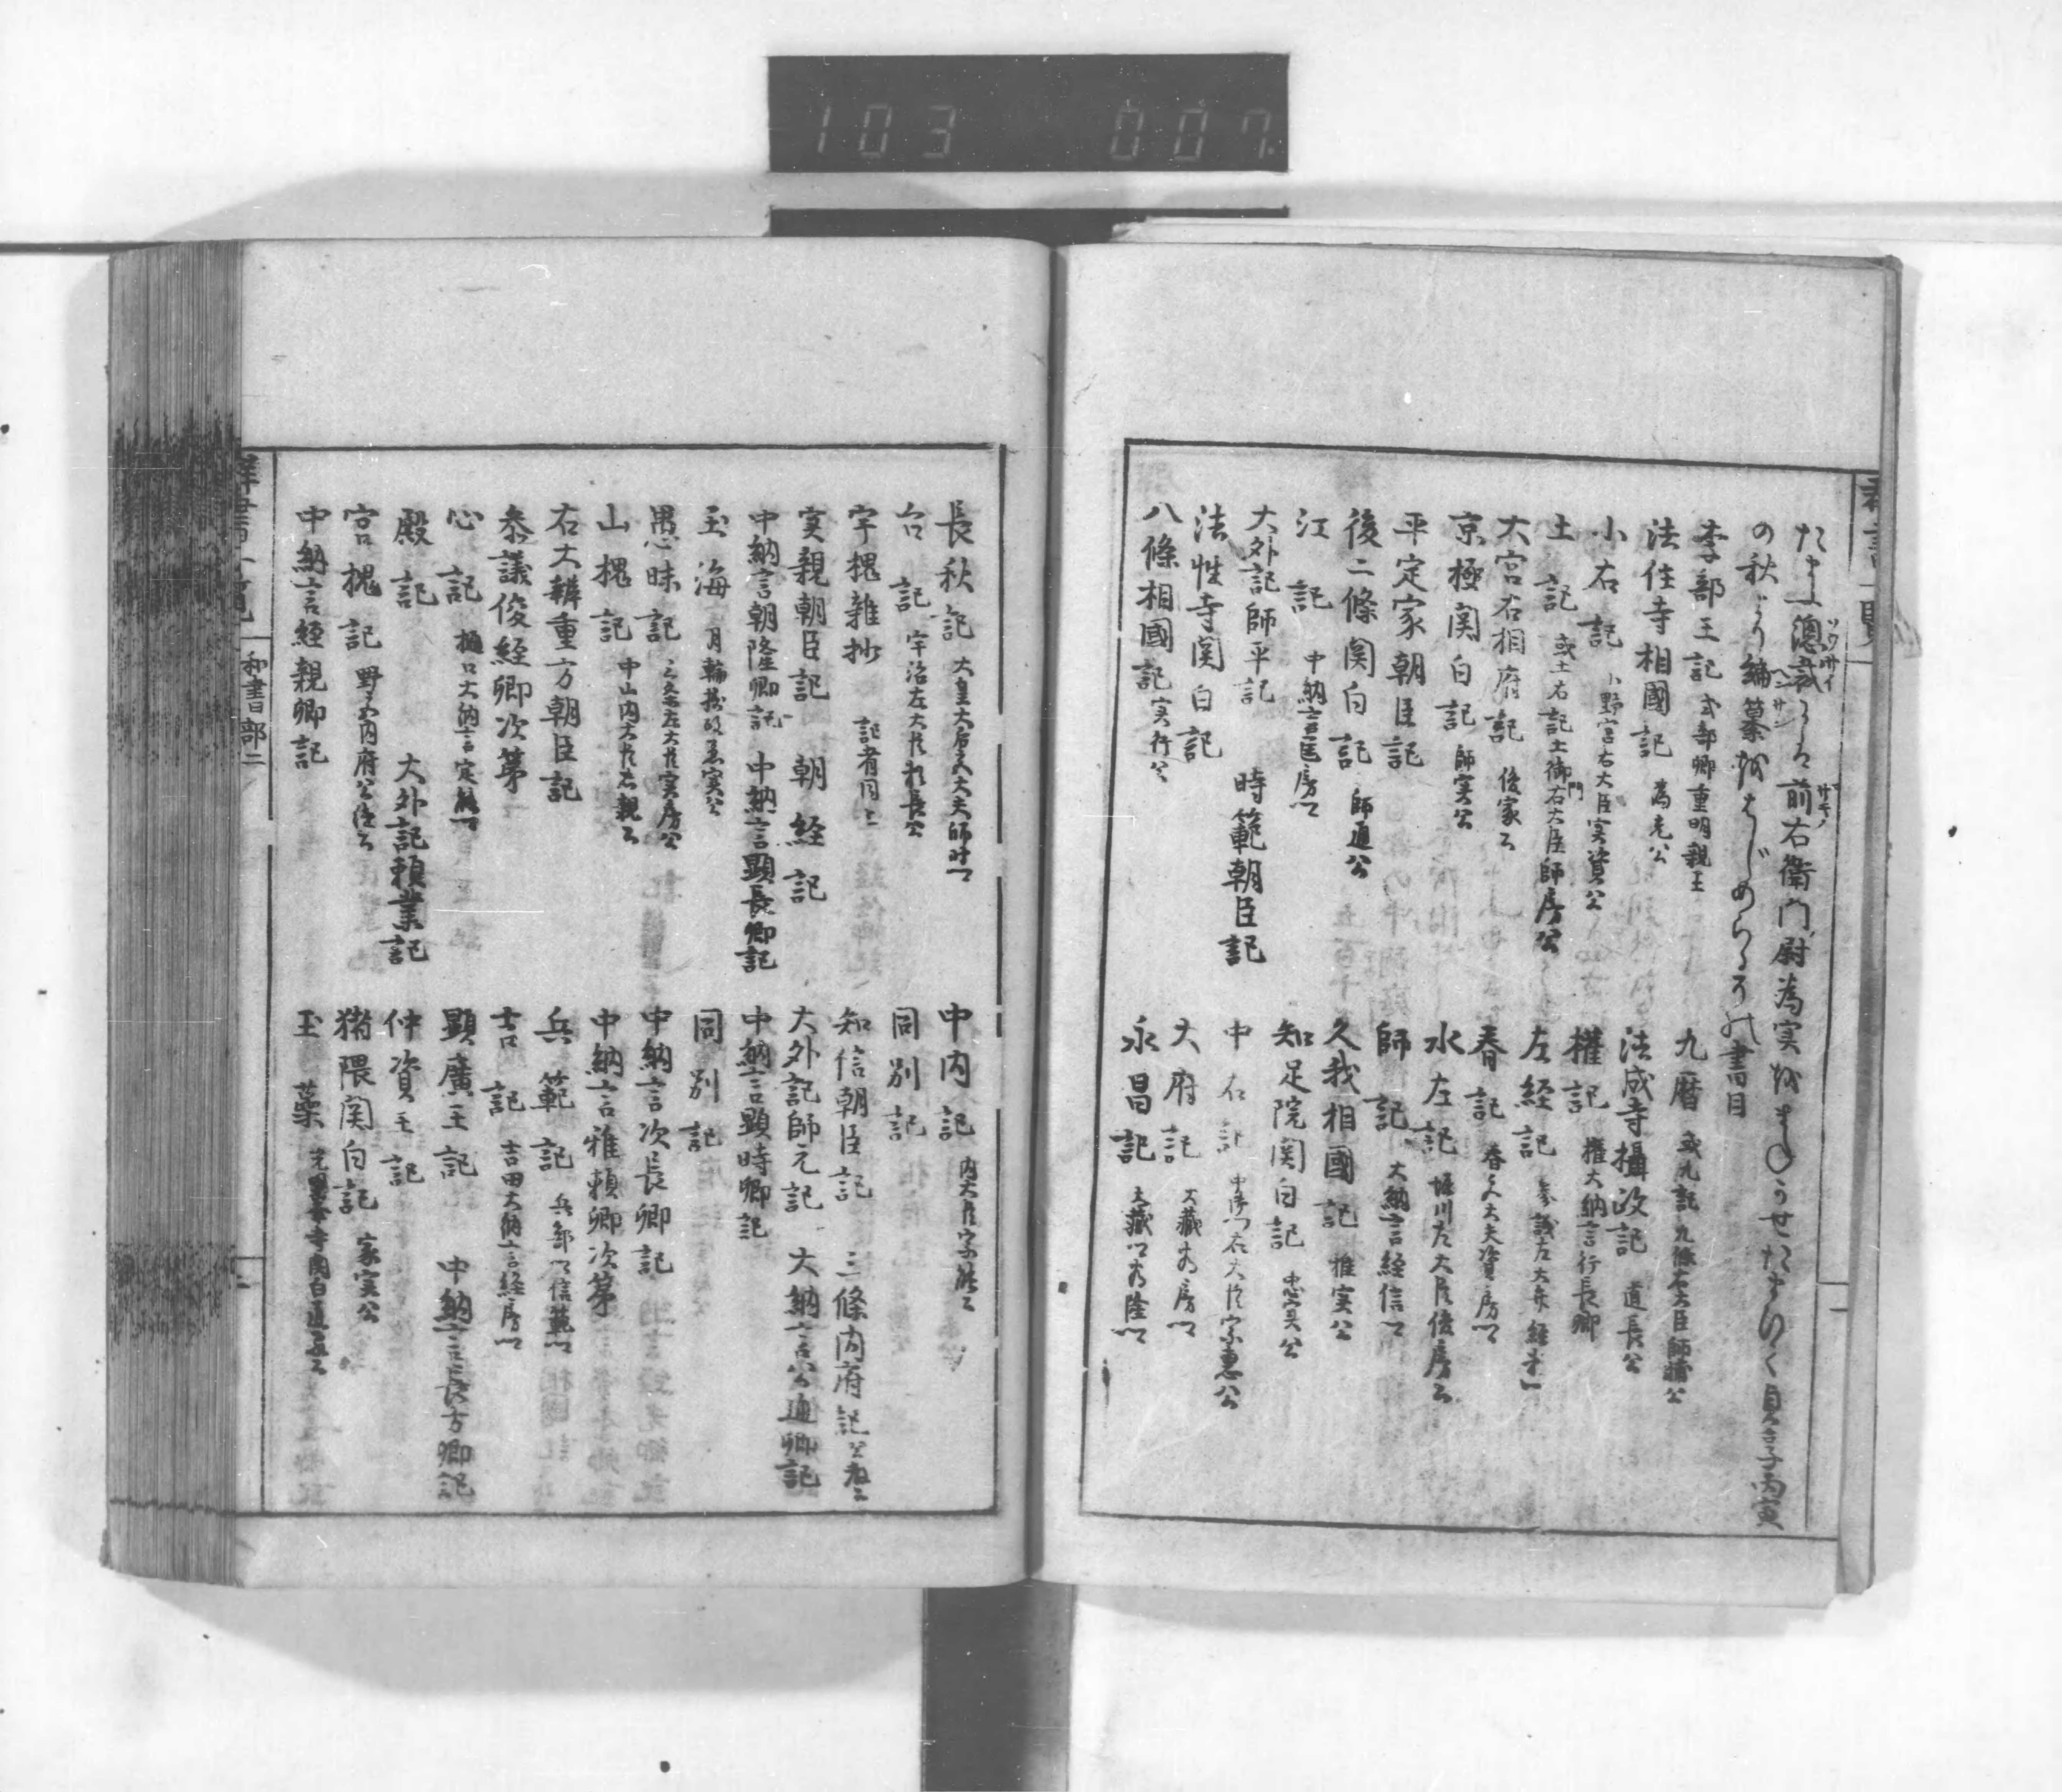 103 007.
たまふ總裁ハ前右衛門尉為実
ソウサイ
サキノ
貞享丙寅
の秋より編纂
ヘンサン
はじめらる
書目
李部王記 式部卿重明親王
九暦 或九記 九條右大臣師輔公
法住寺相國記 為光公
法成寺攝政記 道長公
小右記 小野宮右大臣実資公
權記 權大納言行長卿
土記 或土右記土御門右大臣師房公
左経記 参議左大弁経
大宮右相府記 俊家公
春記 春宮大夫資房卿
京極関白記 師実公
水左記 堀川左大臣俊房公
平定家朝臣記
師記 大納言経信卿
後二條関白記 師通公
久我相國記 雅実公
江記 中納言匡房卿
知足院関白記 忠実公
大外記師平記 時範朝臣記
中右記 中御門右大臣宗忠公
法性寺関白記
大府記 大藏卿為房卿
八條相國記 実行公
永昌記 大藏卿為隆卿
長秋記 大皇大后宮大夫師時卿
中内記 内大臣宗能公
台記 宇治左大臣頼長公
同別記
宇槐雜抄 記者同上
知信朝臣記 三條内府記 公教公
実親朝臣記 朝経記
大外記師元記 大納言公通卿記
中納言朝隆卿記 中納言顕長卿記
中納言顕時卿記
玉海 月輪摂政兼実公
同別記
愚昧記 三条左大臣実房公
中納言次長卿記
山槐記 中山内大臣忠親公
中納言雅頼卿次第
右大辨重方朝臣記
兵範記 兵部卿信範卿
参議俊経卿次第
吉記 吉田大納言経房卿
心記 樋口大納言定能卿
顕廣王記 中納言長方卿記
殿記 大外記頼業記
仲資王記
宮槐記 野宮内府公継公
猪隈関白記 家実公
中納言経親卿記
玉蘂 光明峯寺関白道家公
和書部二